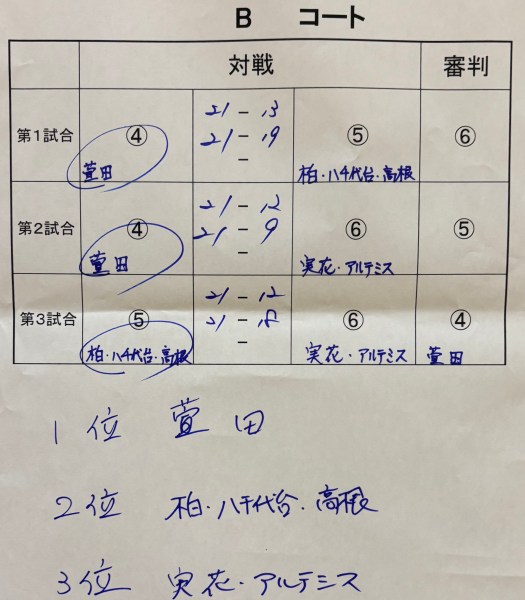 B コート
対戦 審判
第1試合 ④ 21 - 13 ⑤ ⑥
21 - 19
-
萱田 柏・八千代台・高根
第2試合 ④ 21 - 12 ⑥ ⑤
21 - 9
-
萱田 実花・アルテミス
第3試合 ⑤ 21 - 12 ⑥ ④
21 - 18
-
柏・八千代台・高根 実花・アルテミス 萱田
1位 萱田
2位 柏・八千代台・高根
3位 実花・アルテミス